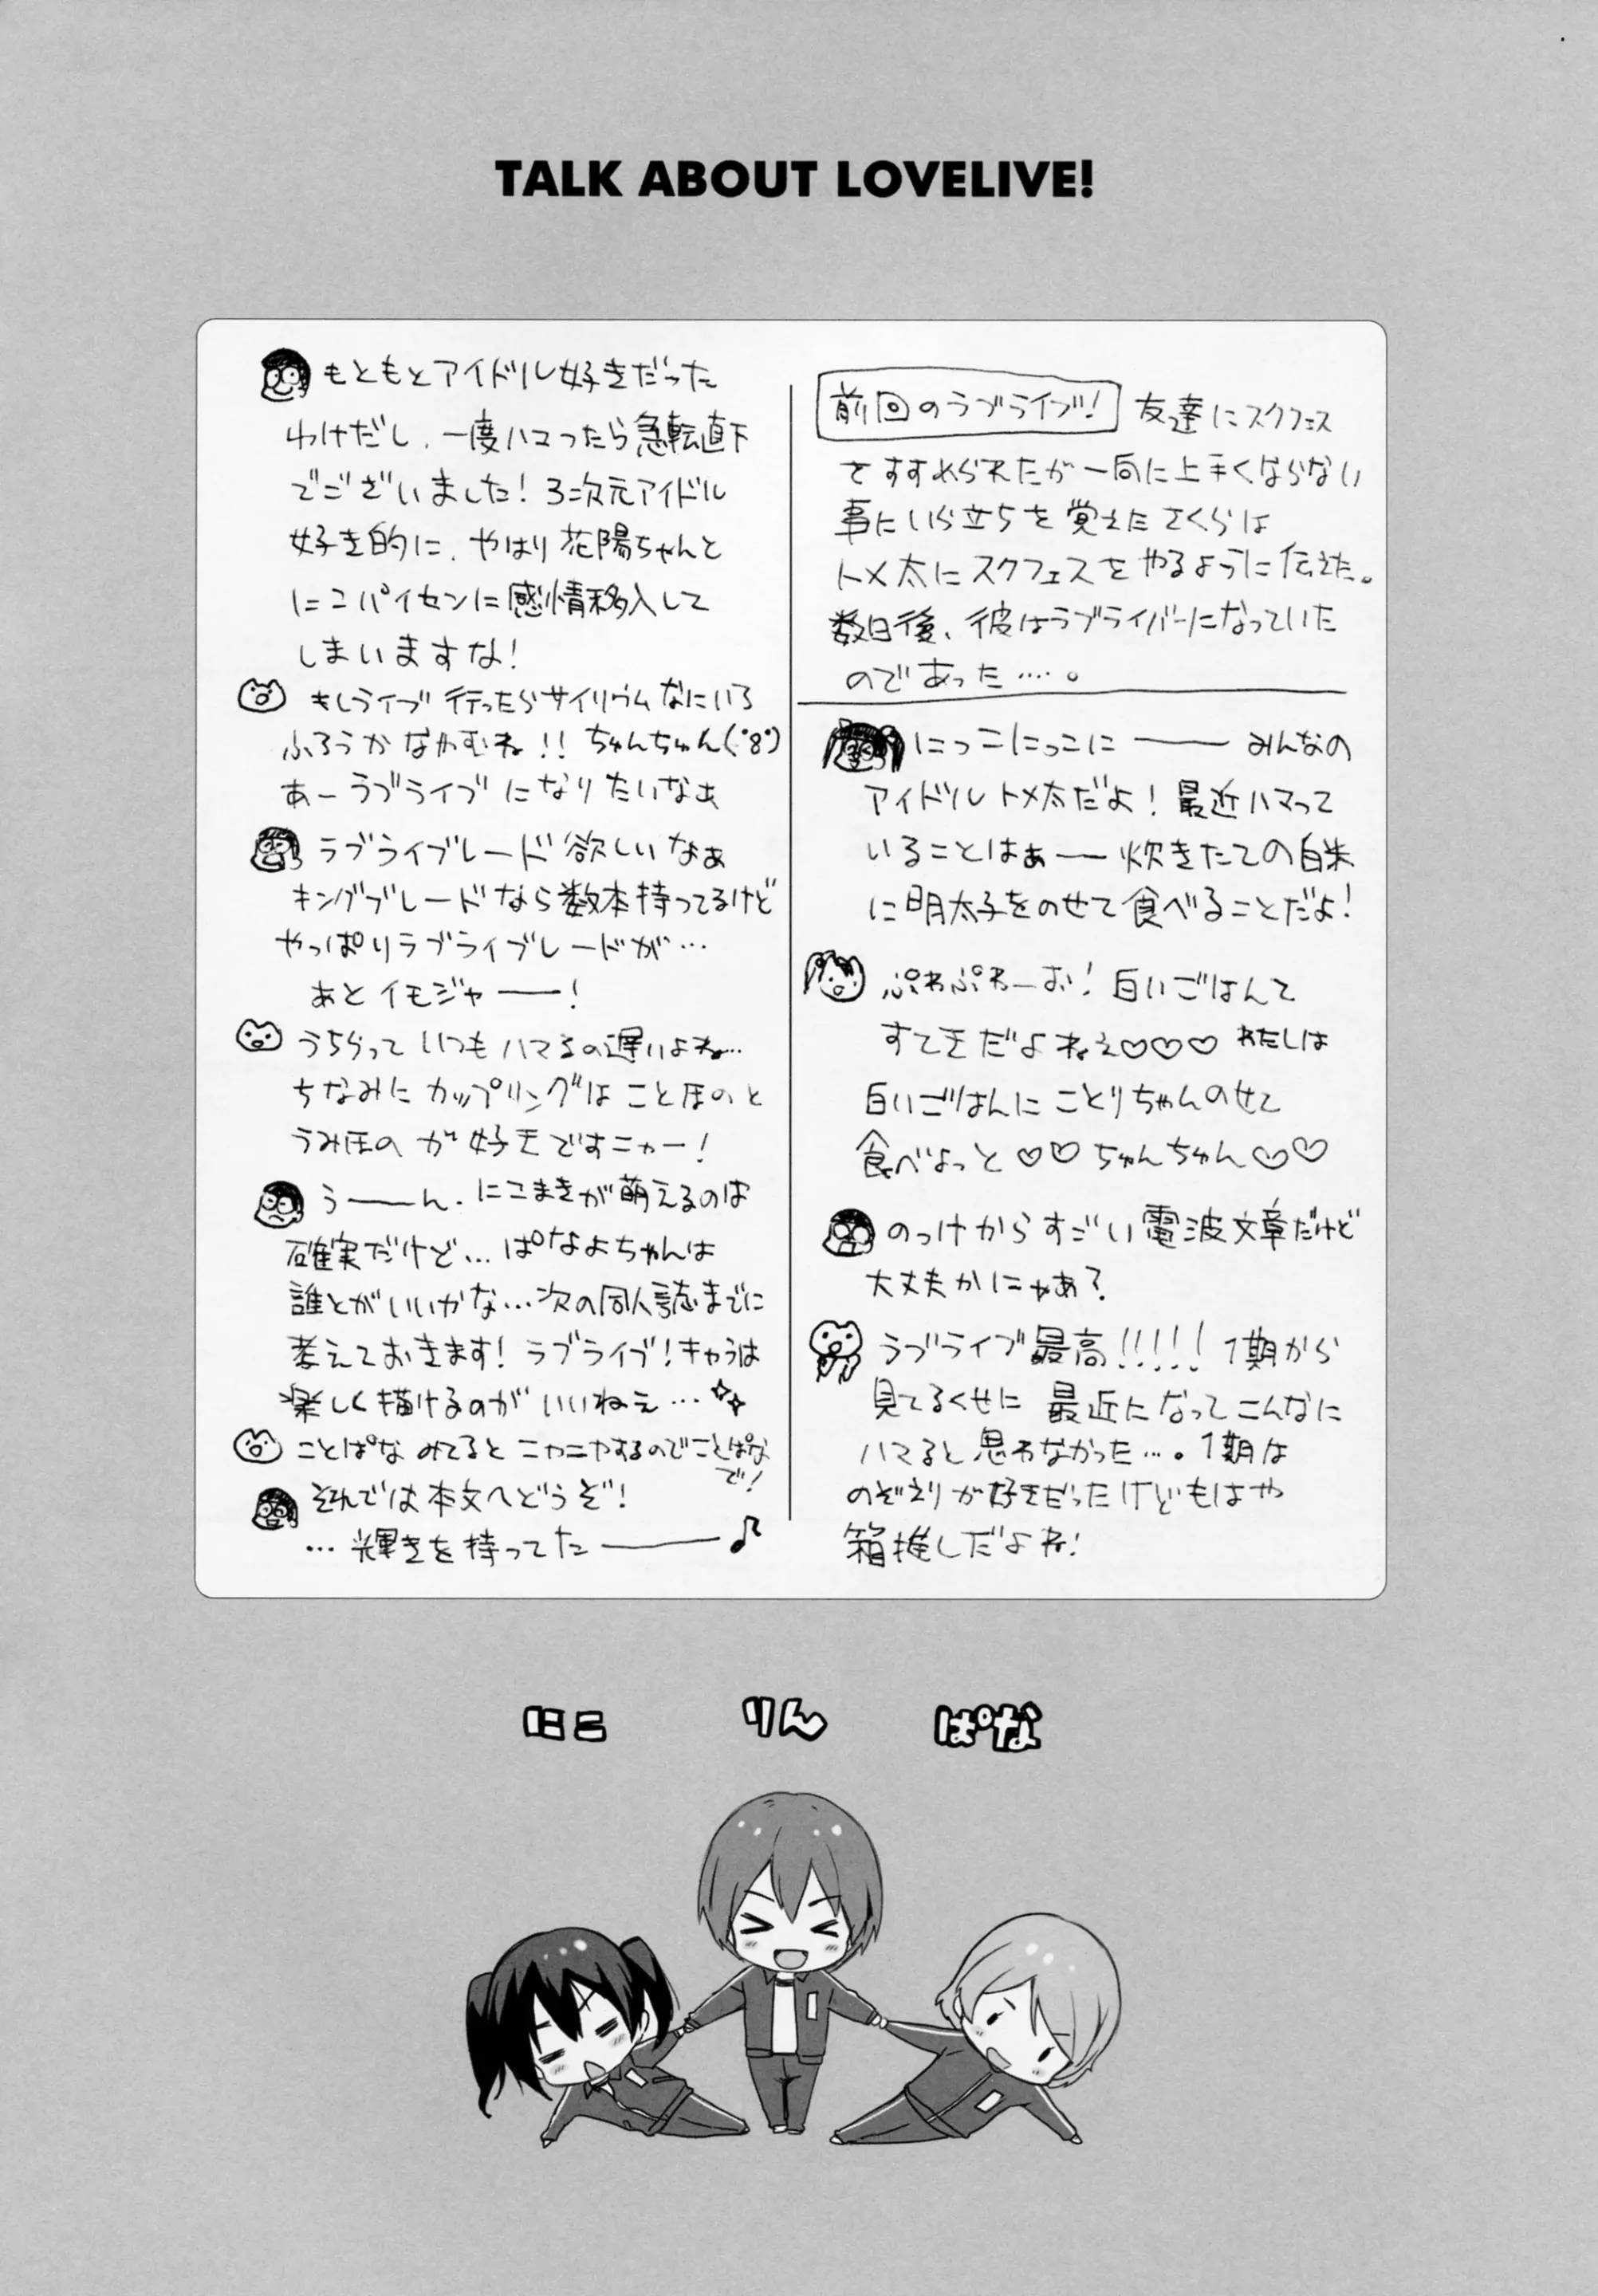 TALK ABOUT LOVELIVE!
前回のラブライブ! 友達にスクフェス
をすすめられたが一向に上手くならない
事にいら立ちを覚えたさくらは
トメ太にスクフェスをやるように伝えた。
数日後、彼はラブライバーになっていた
のであった…。
にっこにっこにーーみんなの
アイドルトメ太だよ!最近ハマって
いることはぁー炊きたての白米
に明太子をのせて食べることだよ!
ぷわぷわーお!白いごはんて
すてきだよねえ♡♡♡わたしは
白いごはんにことりちゃんのせて
食べよっと♡♡ちゅんちゅん♡♡
のっけからすごい電波文章だけど
大丈夫かにゃあ?
ラブライブ最高!!!!!1期から
見てるくせに最近になってこんなに
ハマると思わなかった…。1期は
のぞえりが好きだったけどもはや
箱推しだよね!
もともとアイドル好きだった
わけだし、一度ハマったら急転直下
でございました!3次元アイドル
好き的に、やはり花陽ちゃんと
にこパイセンに感情移入して
しまいますな!
もしライブ行ったらサイリウムなにいろ
ふろうかなやむね!!ちゅんちゅん(・8・)
あーラブライブになりたいなぁ
ラブライブレード欲しいなぁ
キングブレードなら数本持ってるけど
やっぱりラブライブレードが…
あとイモジャーー!
うちらっていつもハマるの遅いよね…
ちなみにカップリングはことほのと
うみほのが好きですニャー!
うーーん、にこまきが萌えるのは
確実だけど…ぱなよちゃんは
誰とがいいかな…次の同人誌までに
考えておきます!ラブライブ!キャラは
楽しく描けるのがいいねぇ…✧✧
ことぱなみてるとニヤニヤするのでことぱな
で!
それでは本文へどうぞ!
…輝きを持ってたーー♪
にこ りん ぱな